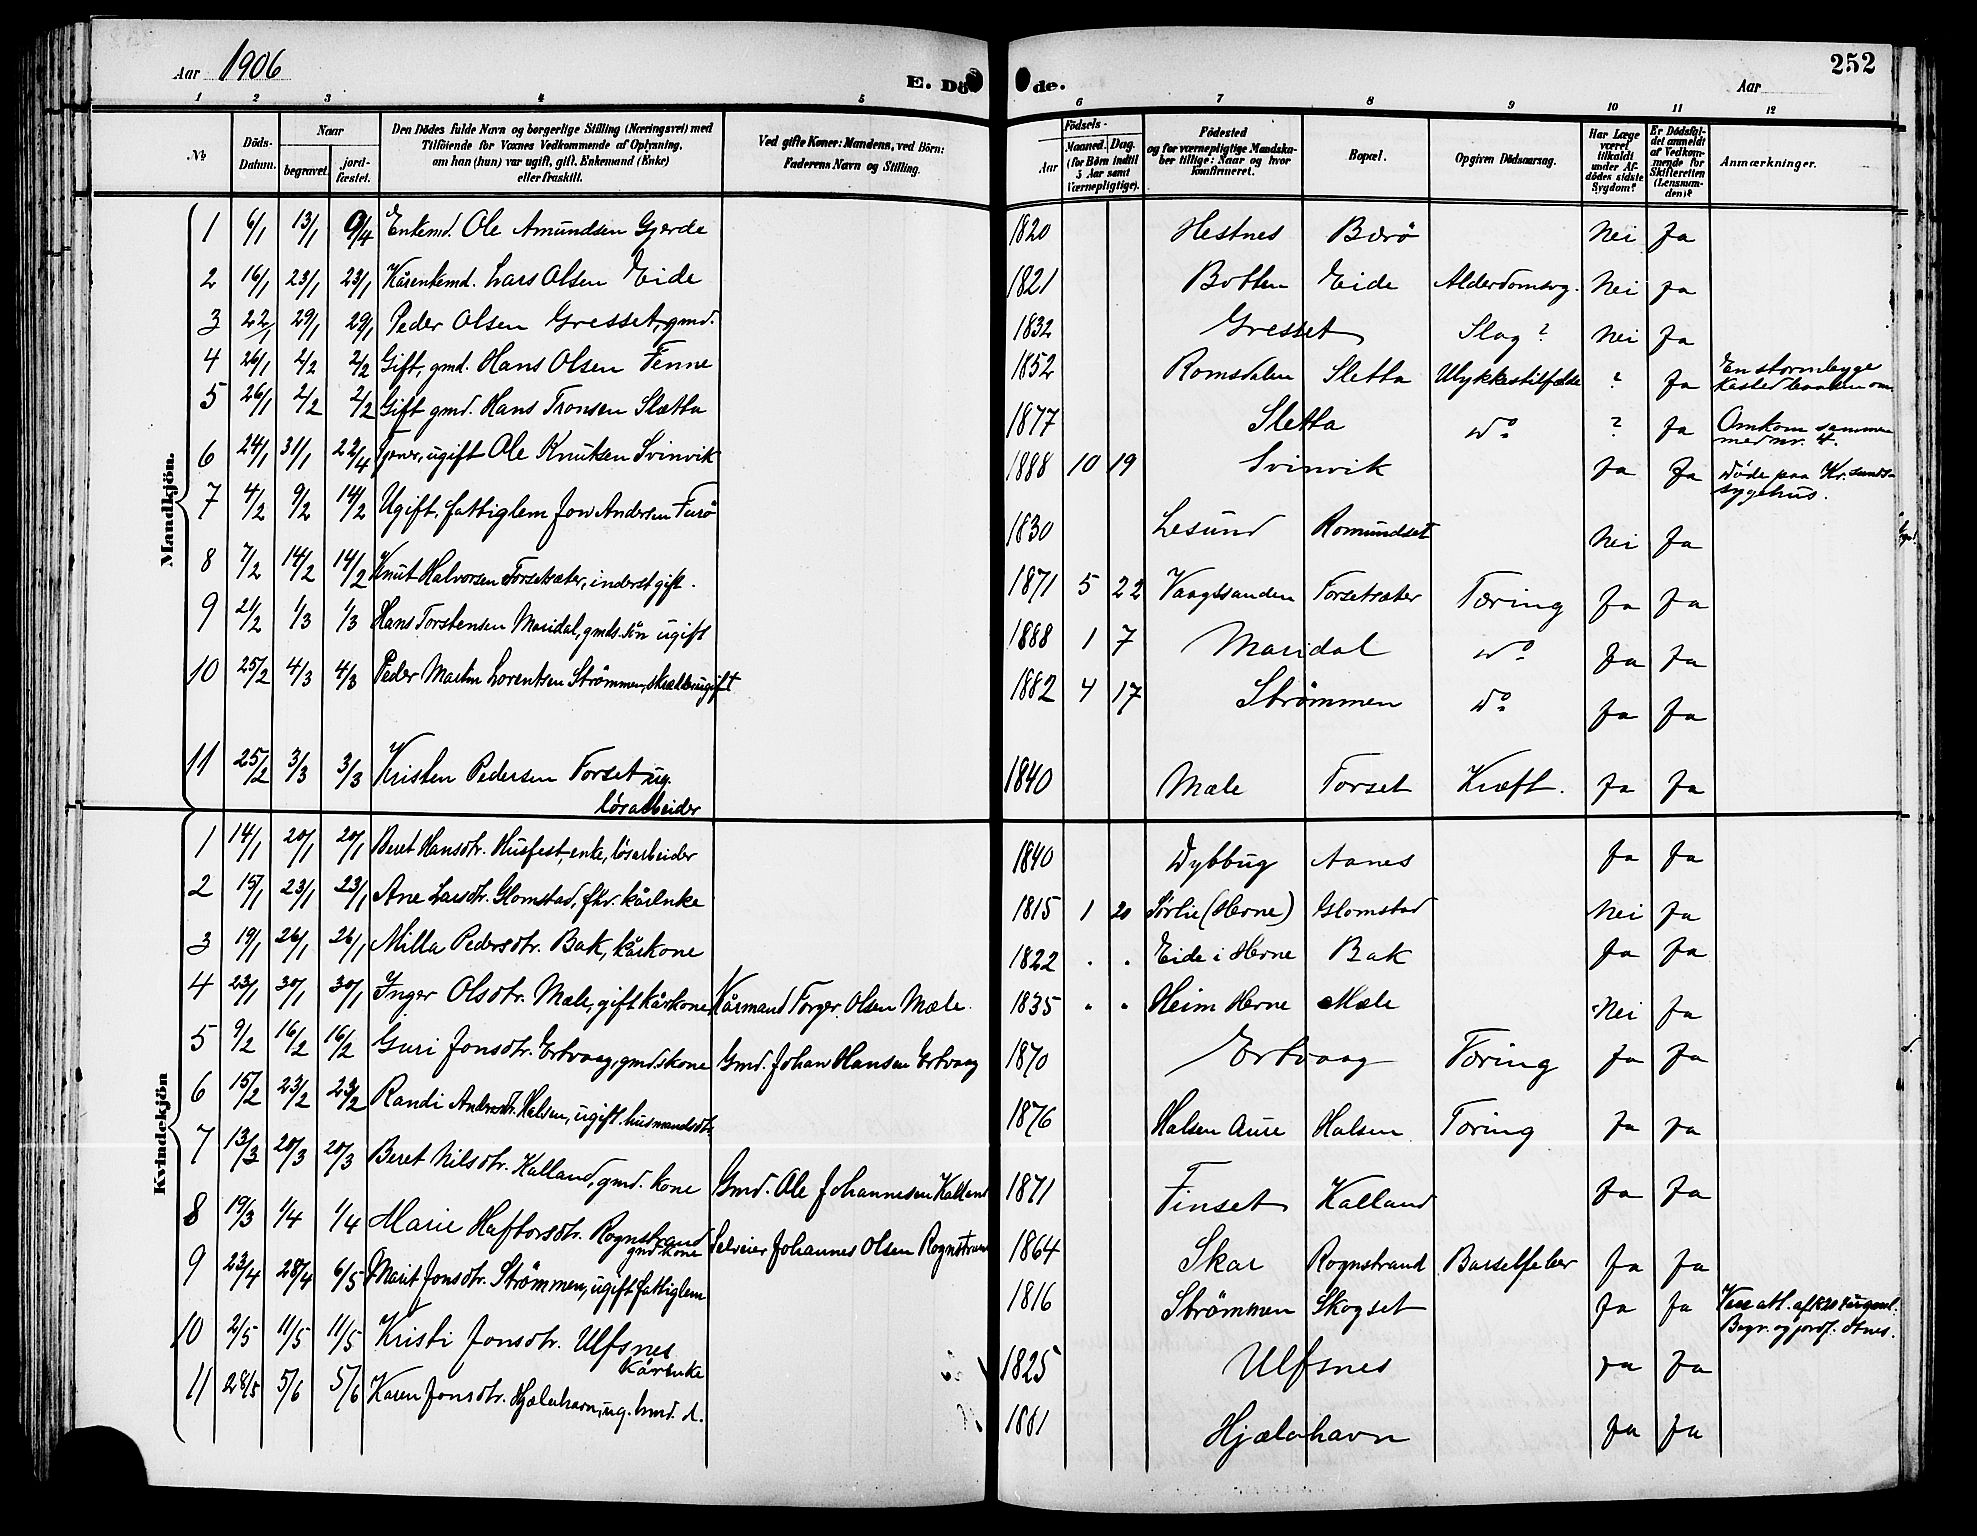 Aar 1906
E. Dö de.
Aar
252
1 2 3 4 5 6 7 8 9 10 11 12
No
Döds-Datum.
Naar
begravet.
jord-fæstet.
Den Dödes fulde Navn og borgerlige Stilling (Næringsvei) med
Tilföiende for Voxnes Vedkommende af Oplysning,
om han (hun) var ugift, gift, Enkemand (Enke)
eller fraskilt.
Ved gifte Koner: Mandens, ved Börn:
Faderens Navn og Stilling.
Födsels-
Aar
Maaned. Dag.
(for Börn indtil
5 Aar samt
Værnepligtige).
Födested
og for værnepligtige Mandska-
ber tillige: Naar og hvor
konfirmeret.
Bopæl.
Opgiven Dödsaarsag.
Har Læge
været
tilkaldt
under Af-
dödes sidste
Sygdom?
Er Dödsfal-
det anmeldt
af Vedkom-
mende for
Skifteretten
(Lensman-
den)?
Anmærkninger.
Mandkjön.
1 6/1 13/1 9/4 Enkemd. Ole Amundsen Gjerde 1820 Hestnes Bærö Nei Ja
2 16/1 23/1 23/1 Kårenkemd. Lars Olsen Eide 1821 Botten Eide Alderdomssvg. Nei Ja
3 22/1 29/1 29/1 Peder Olsen Gresset, gmd. 1832 Gresset Slag? Nei Ja
4 26/1 2/2 2/2 Gift, gmd. Hans Olsen Fenne 1852 Romsdalen Sletta Ulykkestilfælde ? Ja En stormbyge
kasted baaden om
5 26/1 2/2 2/2 Gift gmd. Hans Tronsen Slætta 1877 Sletta Do ? Ja Omkom sammen
med nr. 4.
6 24/1 31/1 22/4 ugift Ole Knutsen Svinvik 1888 10 19 Svinvik Ja Ja Döde paa Kr.sunds
sygehus.
7 4/2 9/2 14/2 Ugift, fattiglem Jon Andersen Furö 1830 Lesund Romundset Nei Ja
8 7/2 14/2 14/2 Knut Halvorsen Forsetsæter, inderst gift. 1871 5 22 Vaagssanden Forsetsæter Tæring Ja Ja
9 21/2 1/3 1/3 Hans Torstensen Maridal, gmds. sön ugift 1888 1 7 Maridal Do Ja Ja
10 25/2 4/3 4/3 Peder Martin Lorentsen Strömmen, ugift 1882 4 17 Strömmen Do Ja Ja
11 25/2 3/3 3/3 Kristen Pedersen Forset ug.
lösarbeider 1840 Mæle Forset Kræft. Ja Ja
Kvindekjön
1 14/1 20/1 20/1 Beret Hansdtr. Husfest, enke, lösarbeider 1840 Dybbug Aanes Ja Ja
2 15/1 23/1 23/1 Ane Larsdtr. Glomstad, fhv. kårenke 1815 1 20 Sørlie (Herne) Glomstad Nei Ja
3 19/1 26/1 26/1 Milla Pedersdtr. Bak, kårkone 1822 . . Eide i Herne Bak Ja Ja
4 23/1 30/1 30/1 Inger Olsdtr. Mæle, gift kårkone Kårmand Torger Olsen Mæle 1835 " " Heim Herne Mæle Nei Ja
5 9/2 16/2 16/2 Guri Jonsdtr. Ertvaag, gmdskone Gmd. Johan Hansen Ertvaag 1870 Ertvaag Tæring Ja Ja
6 15/2 23/2 23/2 Randi Andersdtr. Halsen, ugift husmandsdtr. 1876 Halsen Aure Halsen Tæring Ja Ja
7 13/3 20/3 20/3 Beret Nilsdtr. Kalland, gmd. kone Gmd. Ole Johannesen Kalland 1871 Finset Kalland Ja Ja
8 19/3 1/4 1/4 Marie Haftorsdtr. Rognstrand
gmd kone Selveier Johannes Olsen Rognstrand 1864 Skar Rognstrand Barselfeber Ja Ja
9 23/4 28/4 6/5 Marit Jonsdtr. Strömmen, ugift fattiglem 1816 Strömmen Skogset Ja Ja
Begr. og jordf. Otnes.
10 2/5 11/5 11/5 Kristi Jonsdtr. Ulfsnes
Kårenke 1825 Ulfsnes Ja Ja
11 28/5 5/6 5/6 Karen Jonsdtr. Hjælahavn, ug. hmd. d. 1881 Hjælahavn Ja Ja